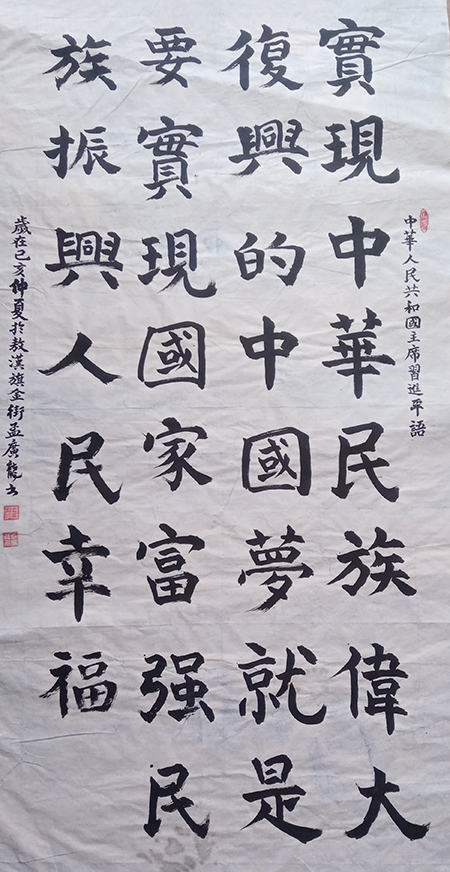 中華人民共和國主席習進平語
實現中華民族偉大
復興的中國夢就是
要實現國家富强民
族振興人民幸福
歲在己亥仲夏於敖漢旗金街孟廣龍书